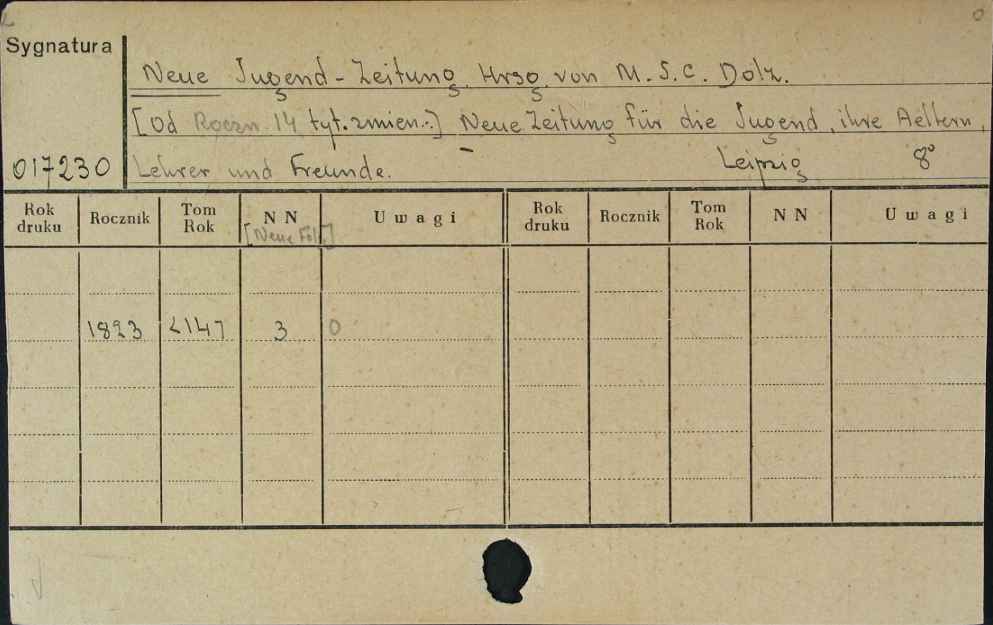 Sygnatura
Neue Jugend-Zeitung. Hrsg. von M. J. C. Dolz.
[Od Roczn. 14 tyt. zmien.:] Neue Zeitung für die Jugend, ihre Aeltern,
017230 Lehrer und Freunde. Leipzig 8°
Rok druku Rocznik Tom Rok N N [Neue Folg.] Uwagi Rok druku Rocznik Tom Rok N N Uwagi
1823 <14> 3 0